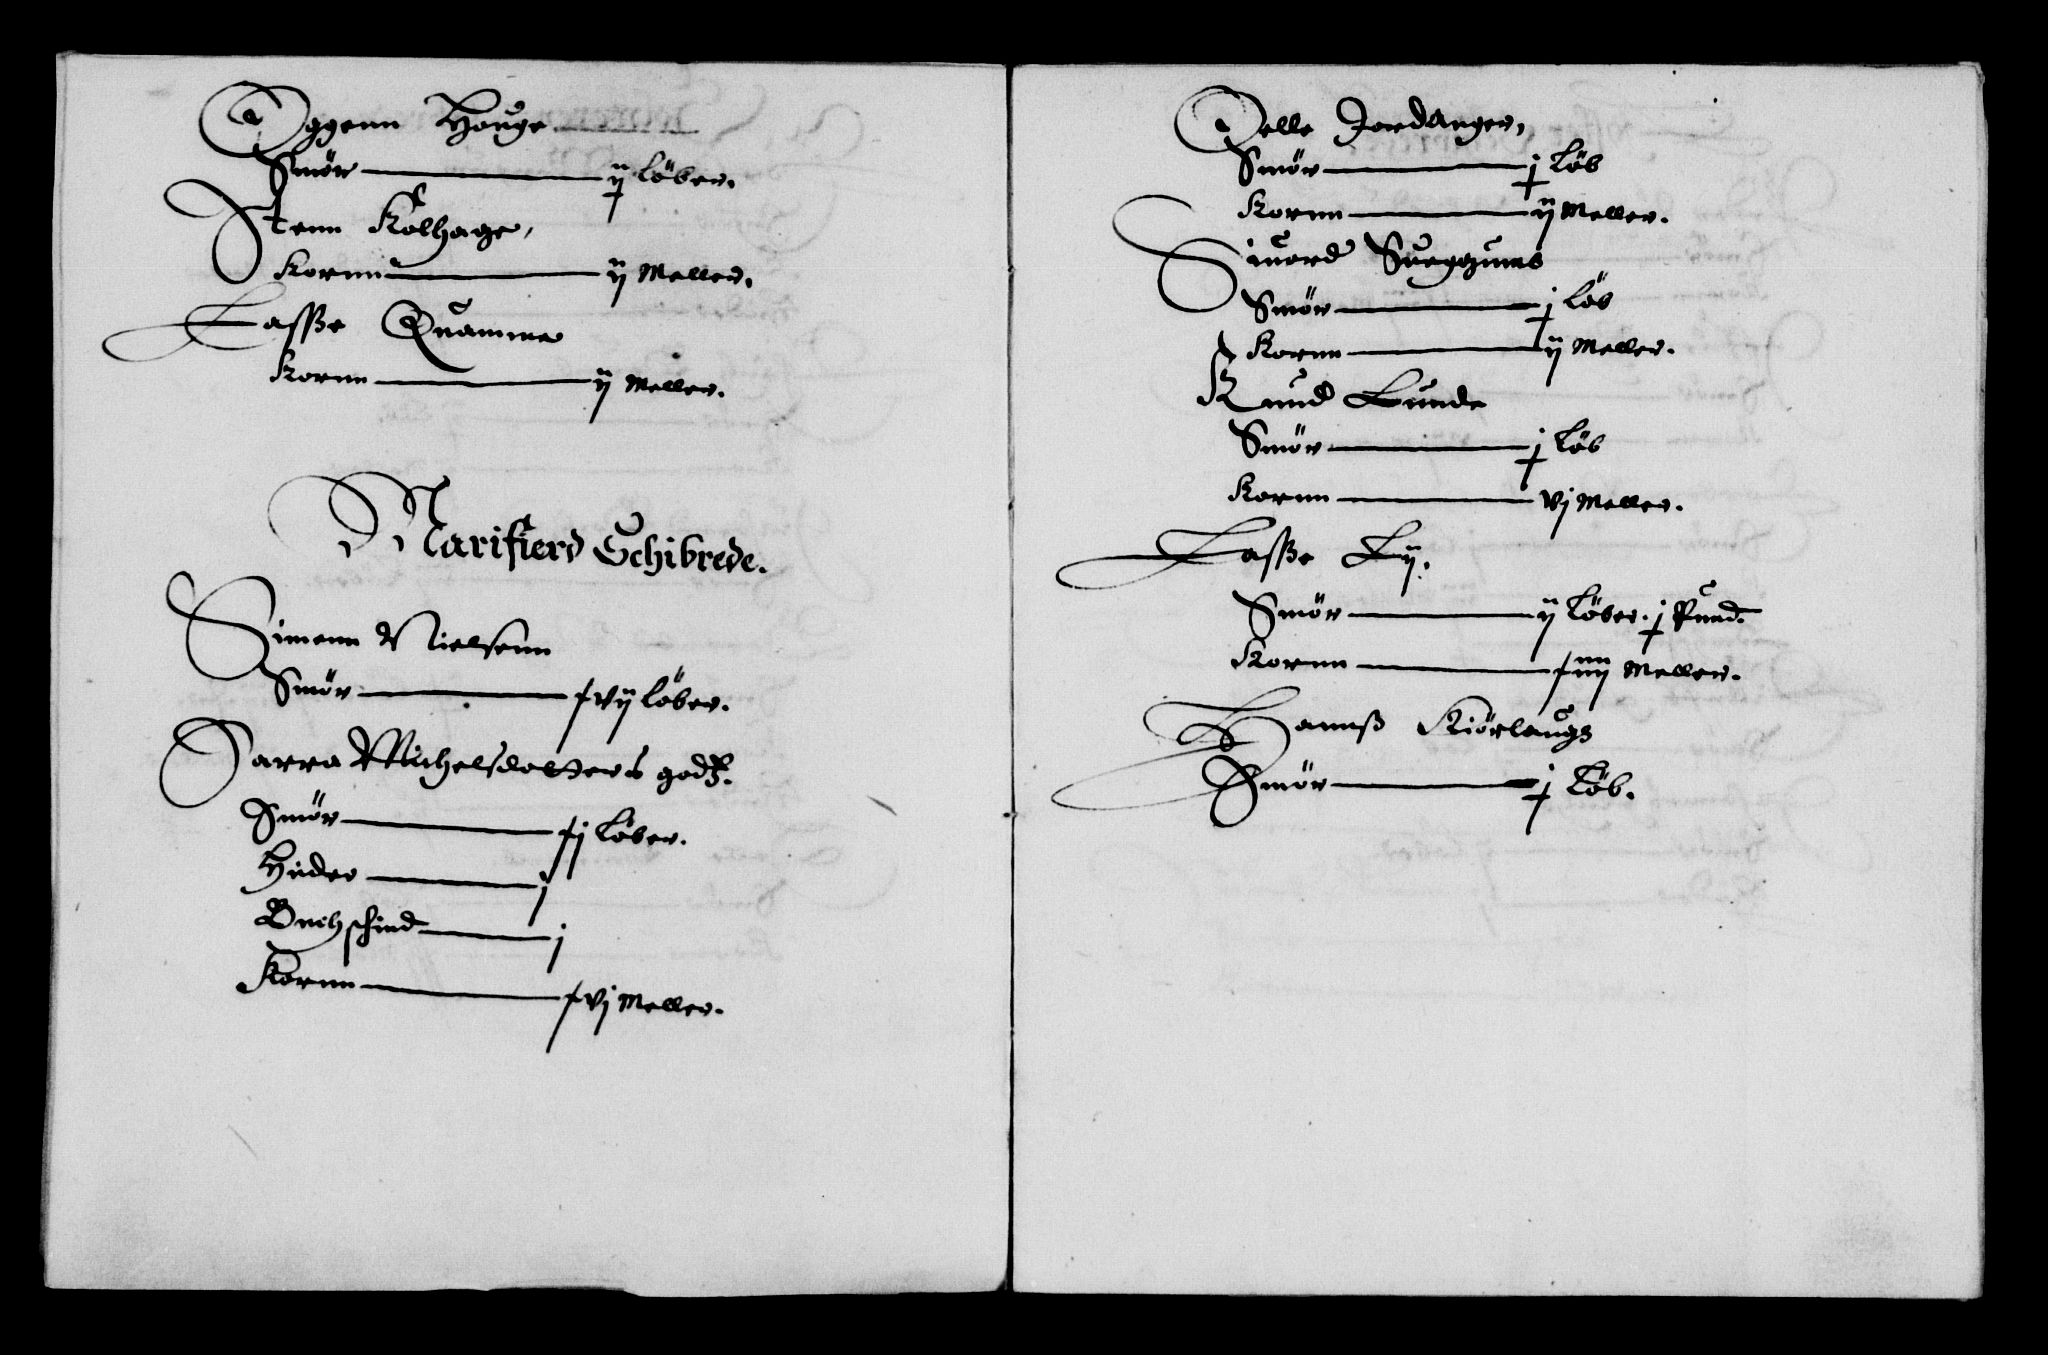 Oggenn Houge
Smör ij löber.
Stenn Kolhage,
Kornn ij Meller.
Lasße Quamme
Kornn ij Meller.
Marifierd Schibrede.
Simenn Nielsenn
Smör vij löber.
Sarra Michelsdotters godz.
Smör ij Löber.
Huder j
Buchschind j
Kornn vj Meller.
Pelle Jordanger,
Smör j Löb
Kornn ij Meller.
Siuord
Smör j löb
Kornn ij Meller.
Knud Lunde
Smör j Löb
Kornn vj Meller.
Lasße Ly.
Smör ij Löber. j Pund.
Kornn iiij Meller.
Hannß Kiörlaugs
Smör j Löb.